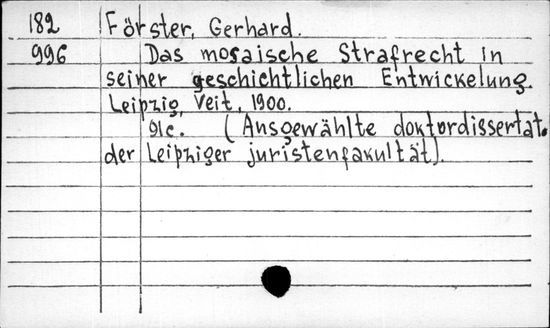 182 Förster, Gerhard.
996 Das mosaische Strafrecht in
seiner geschichtlichen Entwickelung.
Leipzig, Veit, 1900.
91c. (Ausgewählte doktordissertat.
der Leipziger juristenfakultät).